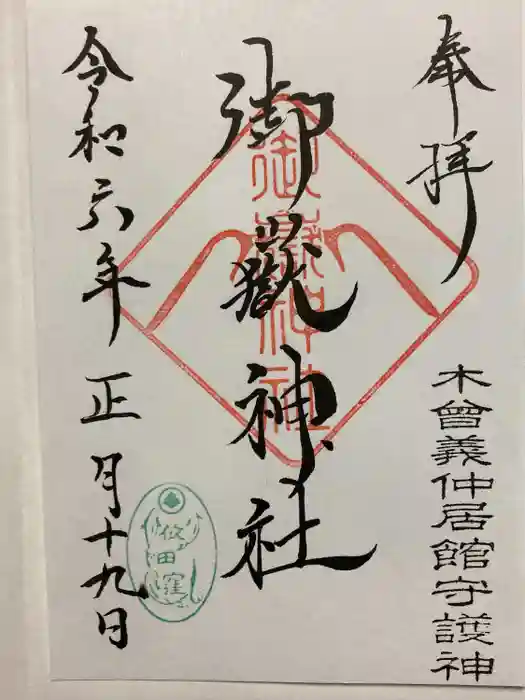 奉拝
木曽義仲居館守護神
御嶽神社
御嶽神社
令和六年正月十九日
佐田窪